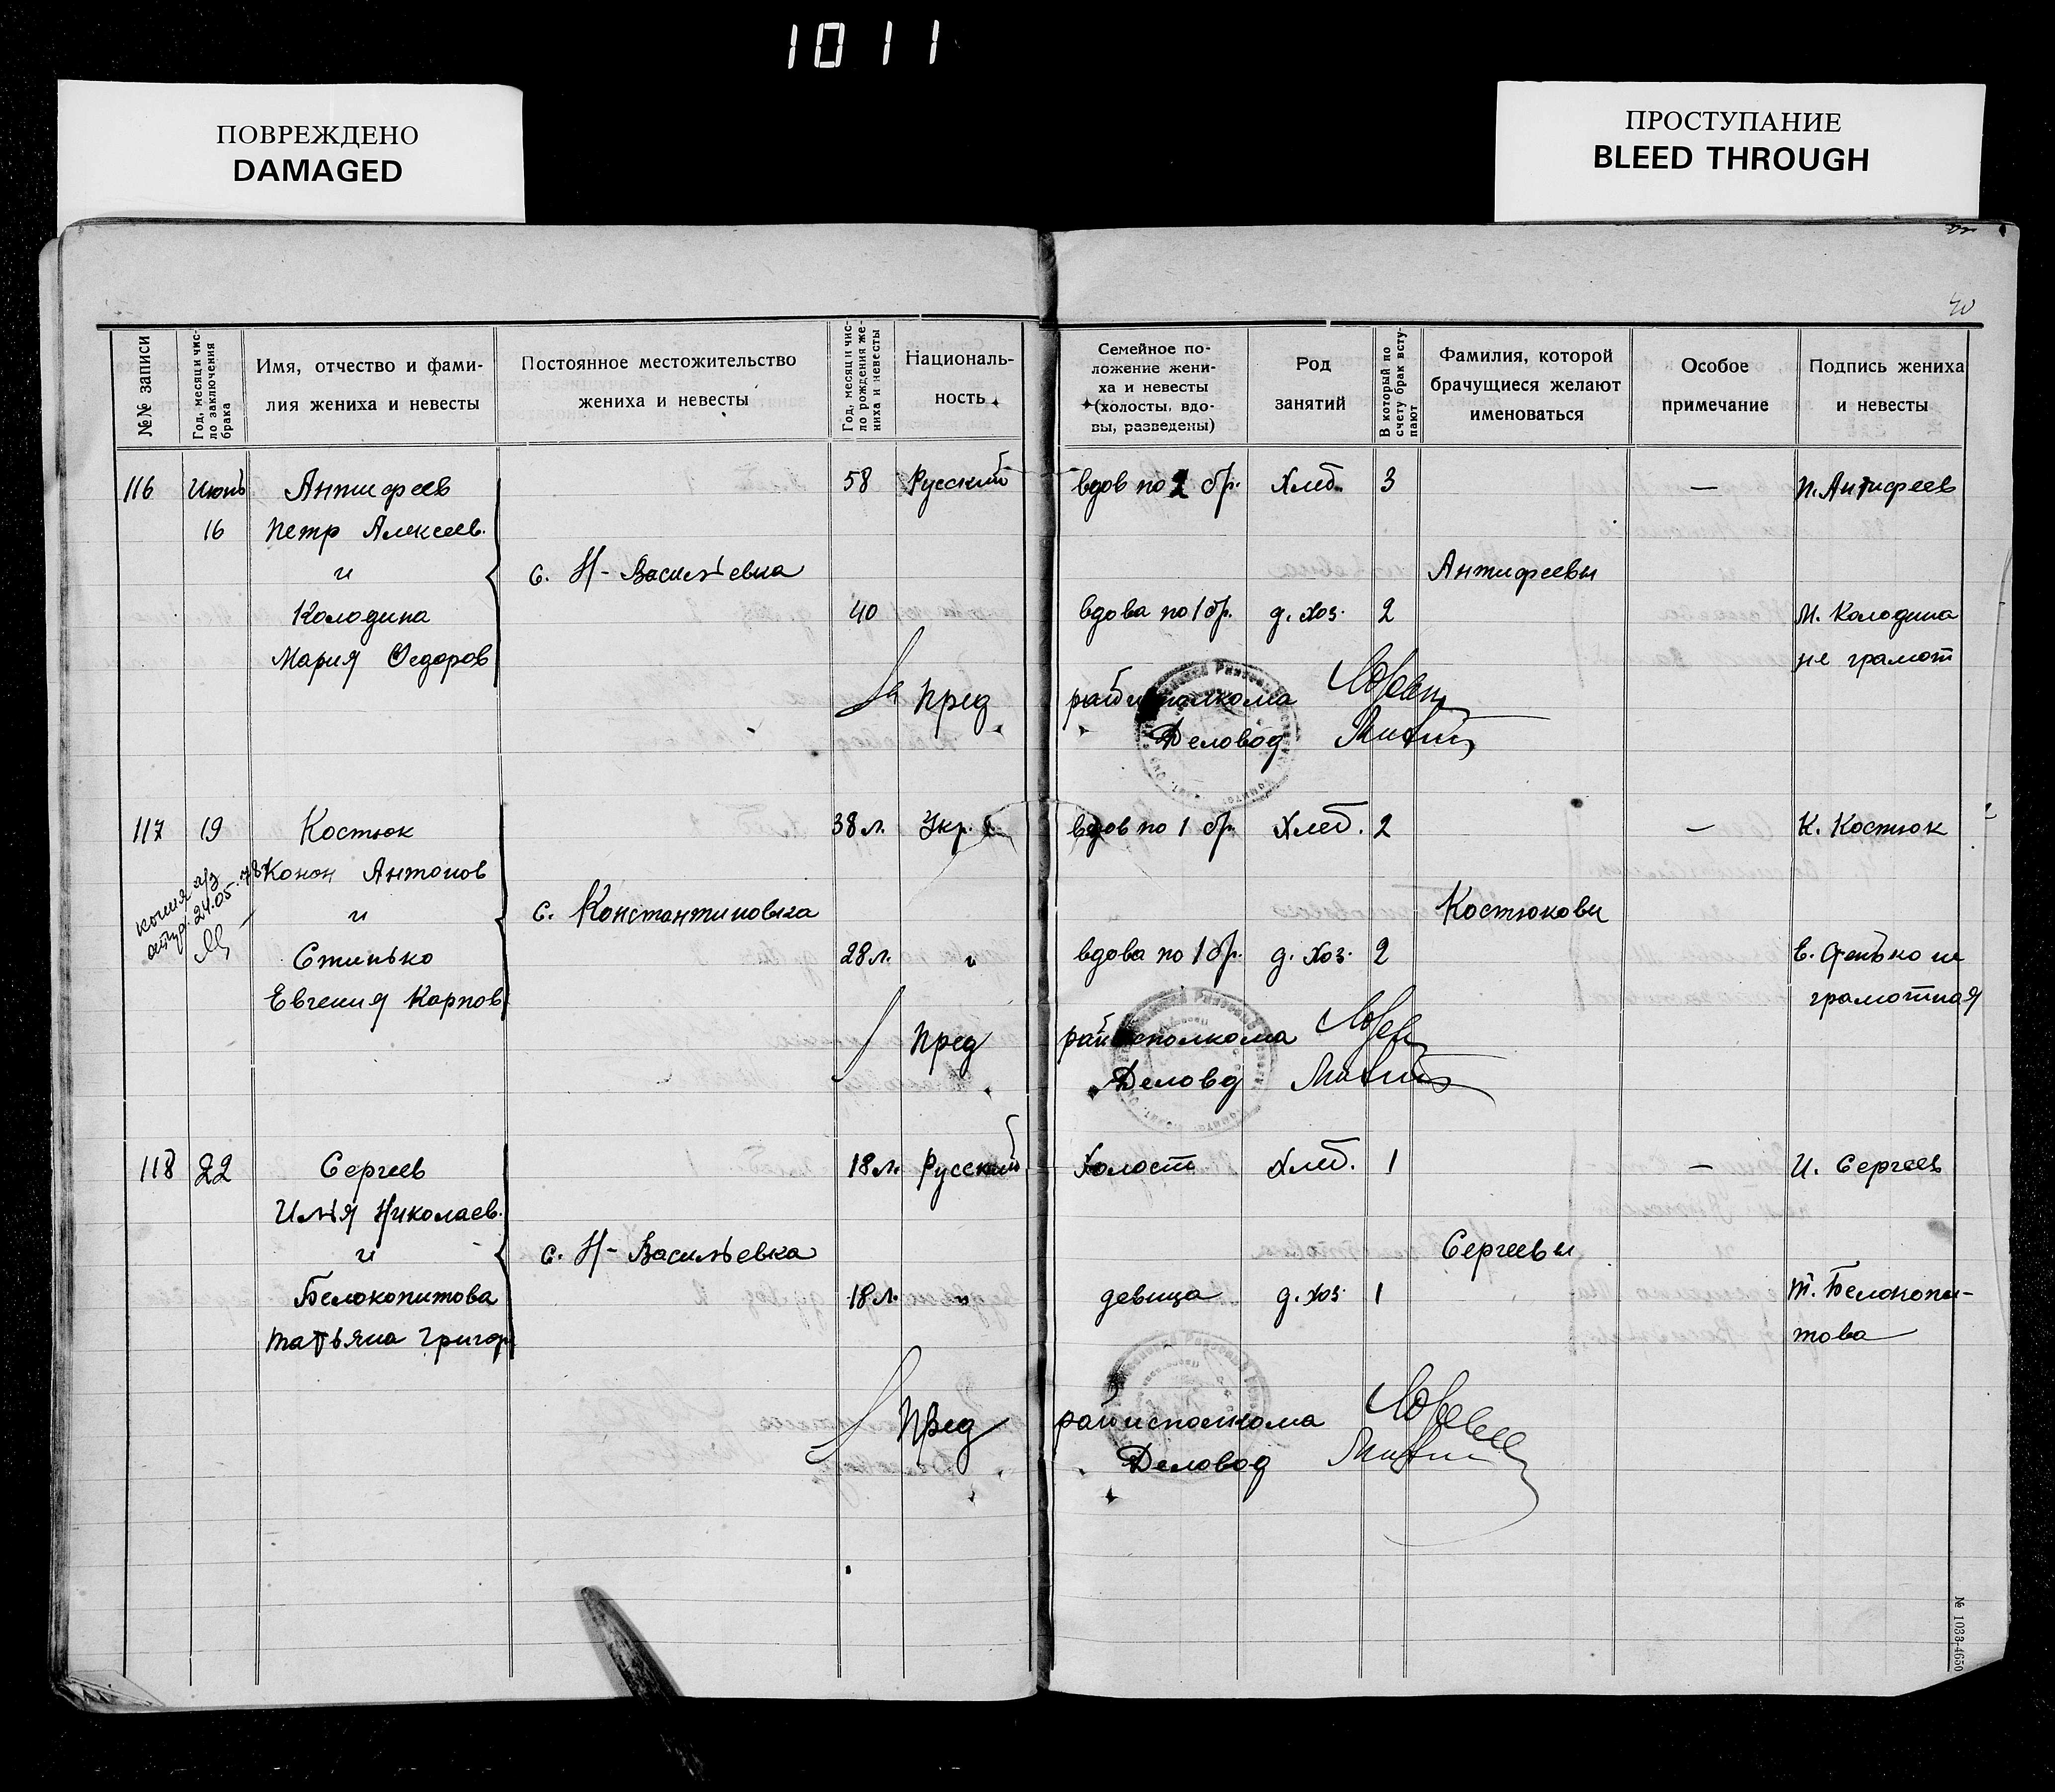 1011
ПОВРЕЖДЕНО
DAMAGED
ПРОСТУПАНИЕ
BLEED THROUGH
40
№№ записи
Год, месяц и чис-
ло заключения
брака
Имя, отчество и фами-
лия жениха и невесты
Постоянное местожительство
жениха и невесты
Год, месяц и чис-
ло рождения же-
ниха и невесты
Националь-
ность
Семейное по-
ложение жени-
ха и невесты
(холосты, вдо-
вы, разведены)
Род
занятий
В который по
счету брак всту-
пают
Фамилия, которой
брачущиеся желают
именоваться
Особое
примечание
Подпись жениха
и невесты
116 Июнь Антифеев 58 Русский вдов по 2 бр. Хлеб. 3 — П. Антифеев
16 Петр Алексеев.
и с. Н-Васильевка Антифеевы
Колодина 40 вдова по 1 бр. д. хоз. 2 М. Колодина
Мария Федоров не грамот
Пред райисполкома
Деловод
117 19 Костюк 38 л. Укр. вдов по 1 бр. Хлеб. 2 — К. Костюк
Конон Антонов
копия а/з
24.05.78
и с. Константиновка Костюковы
Стинько 28 л. " вдова по 1 бр. д. хоз. 2 Е. не
Евгения Карпов грамотная
Пред райисполкома
Деловод
118 22 Сергеев 18 л. Русский Холост Хлеб. 1 — И. Сергеев
Илья Николаев.
и с. Н-Васильевка Сергеевы
Белокопитова 18 л. " девица д. хоз. 1 Т. Белокопи-
Татьяна Григор. това
Пред райисполкома
Деловод
№ 1033-4650